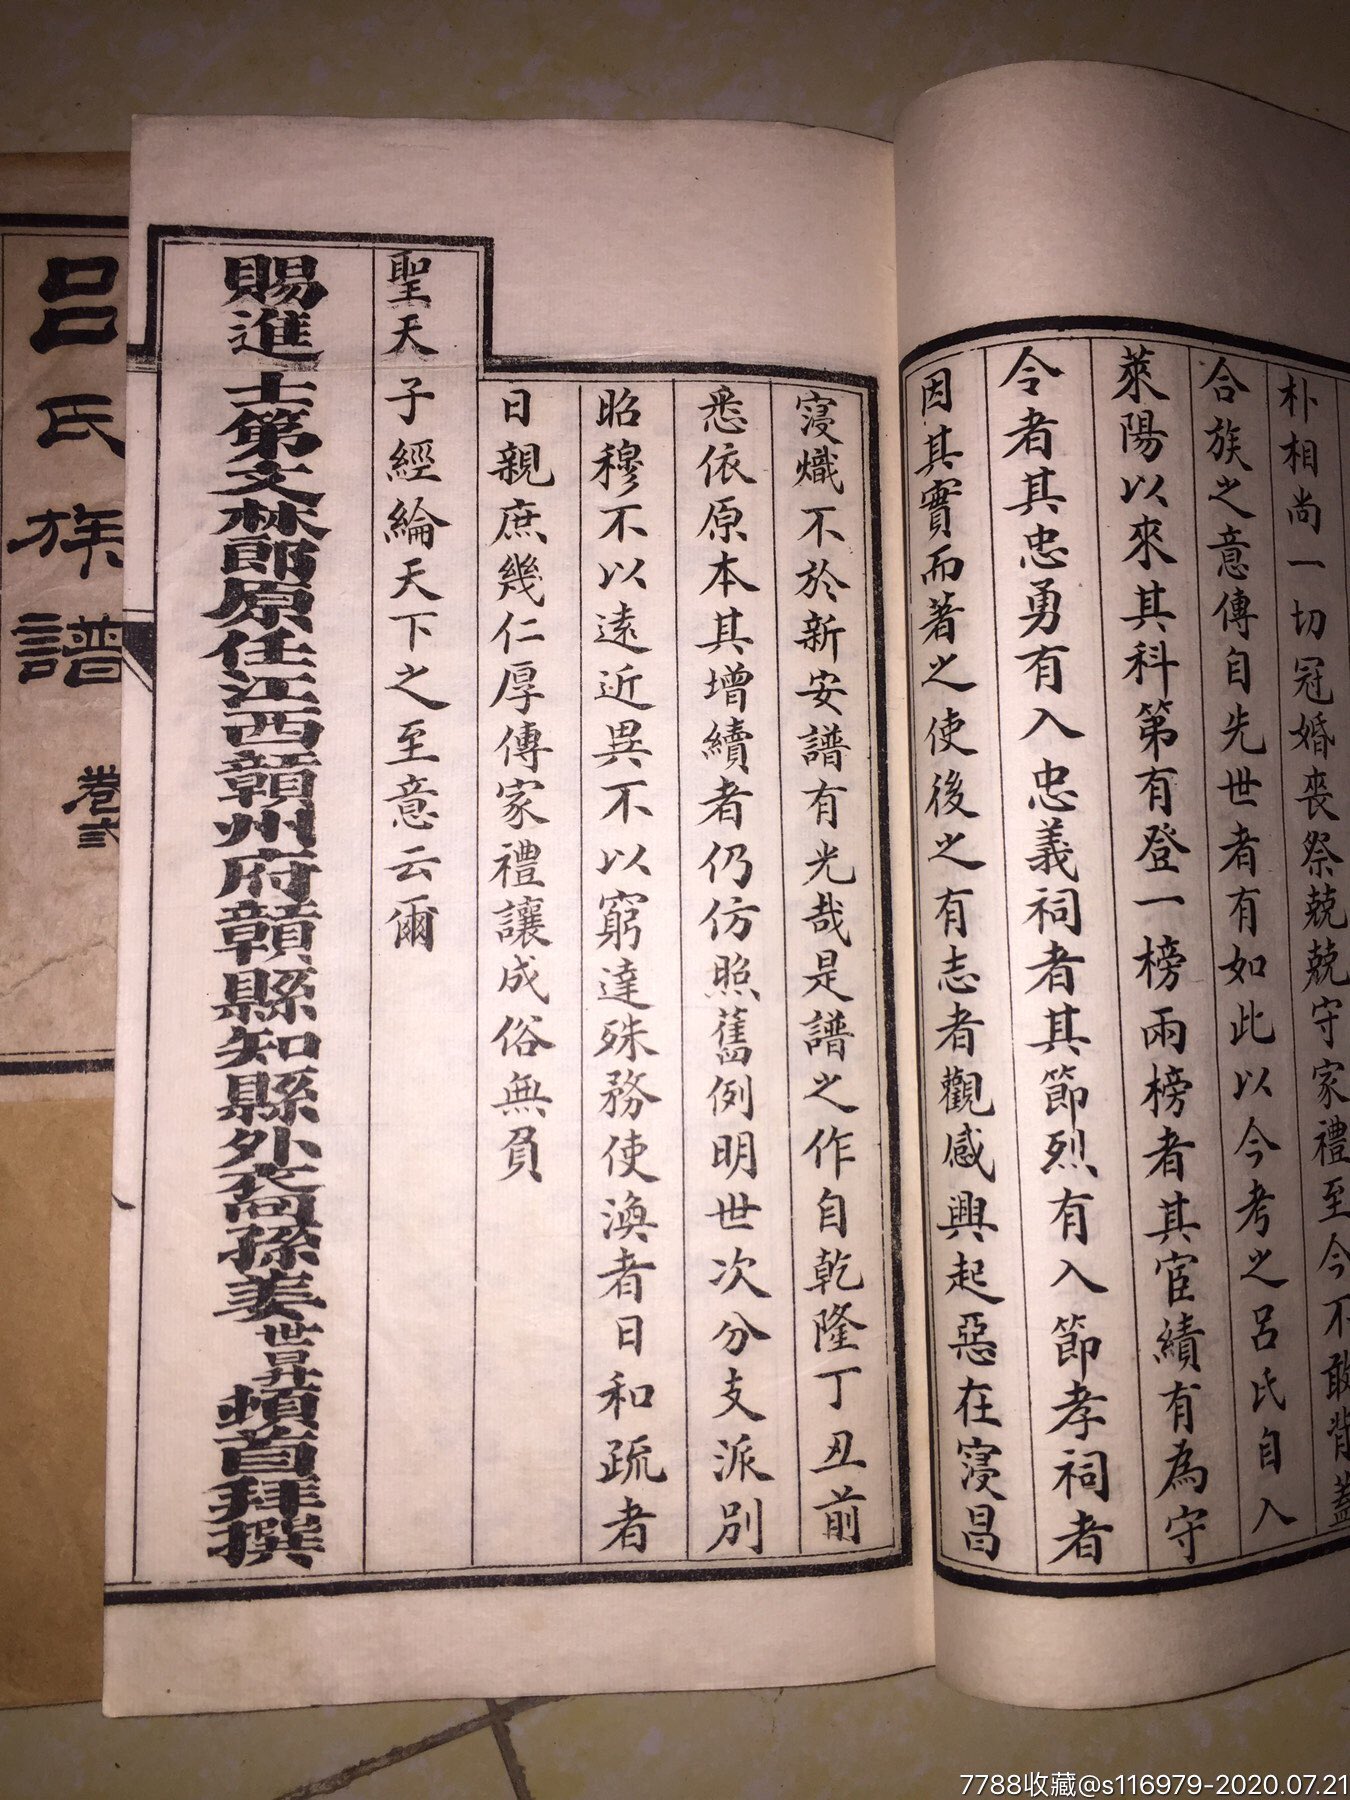 朴相尚一切冠婚喪祭兢兢守家禮至今不敢背蓋
合族之意傳自先世者有如此以今考之呂氏自入
萊陽以來其科第有登一榜兩榜者其宦績有為守
令者其忠勇有入忠義祠者其節烈有入節孝祠者
因其實而著之使後之有志者觀感興起惡在寖昌
寖熾不於新安譜有光哉是譜之作自乾隆丁丑前
悉依原本其增續者仍仿照舊例明世次分支派別
昭穆不以遠近異不以窮達殊務使渙者日和疏者
日親庶幾仁厚傳家禮讓成俗無負
聖天子經綸天下之至意云爾
賜進士第文林郎原任江西贛州府贛縣知縣外裔孫姜世昇頓首拜撰
呂氏族譜 卷弍
7788收藏@s116979-2020.07.21